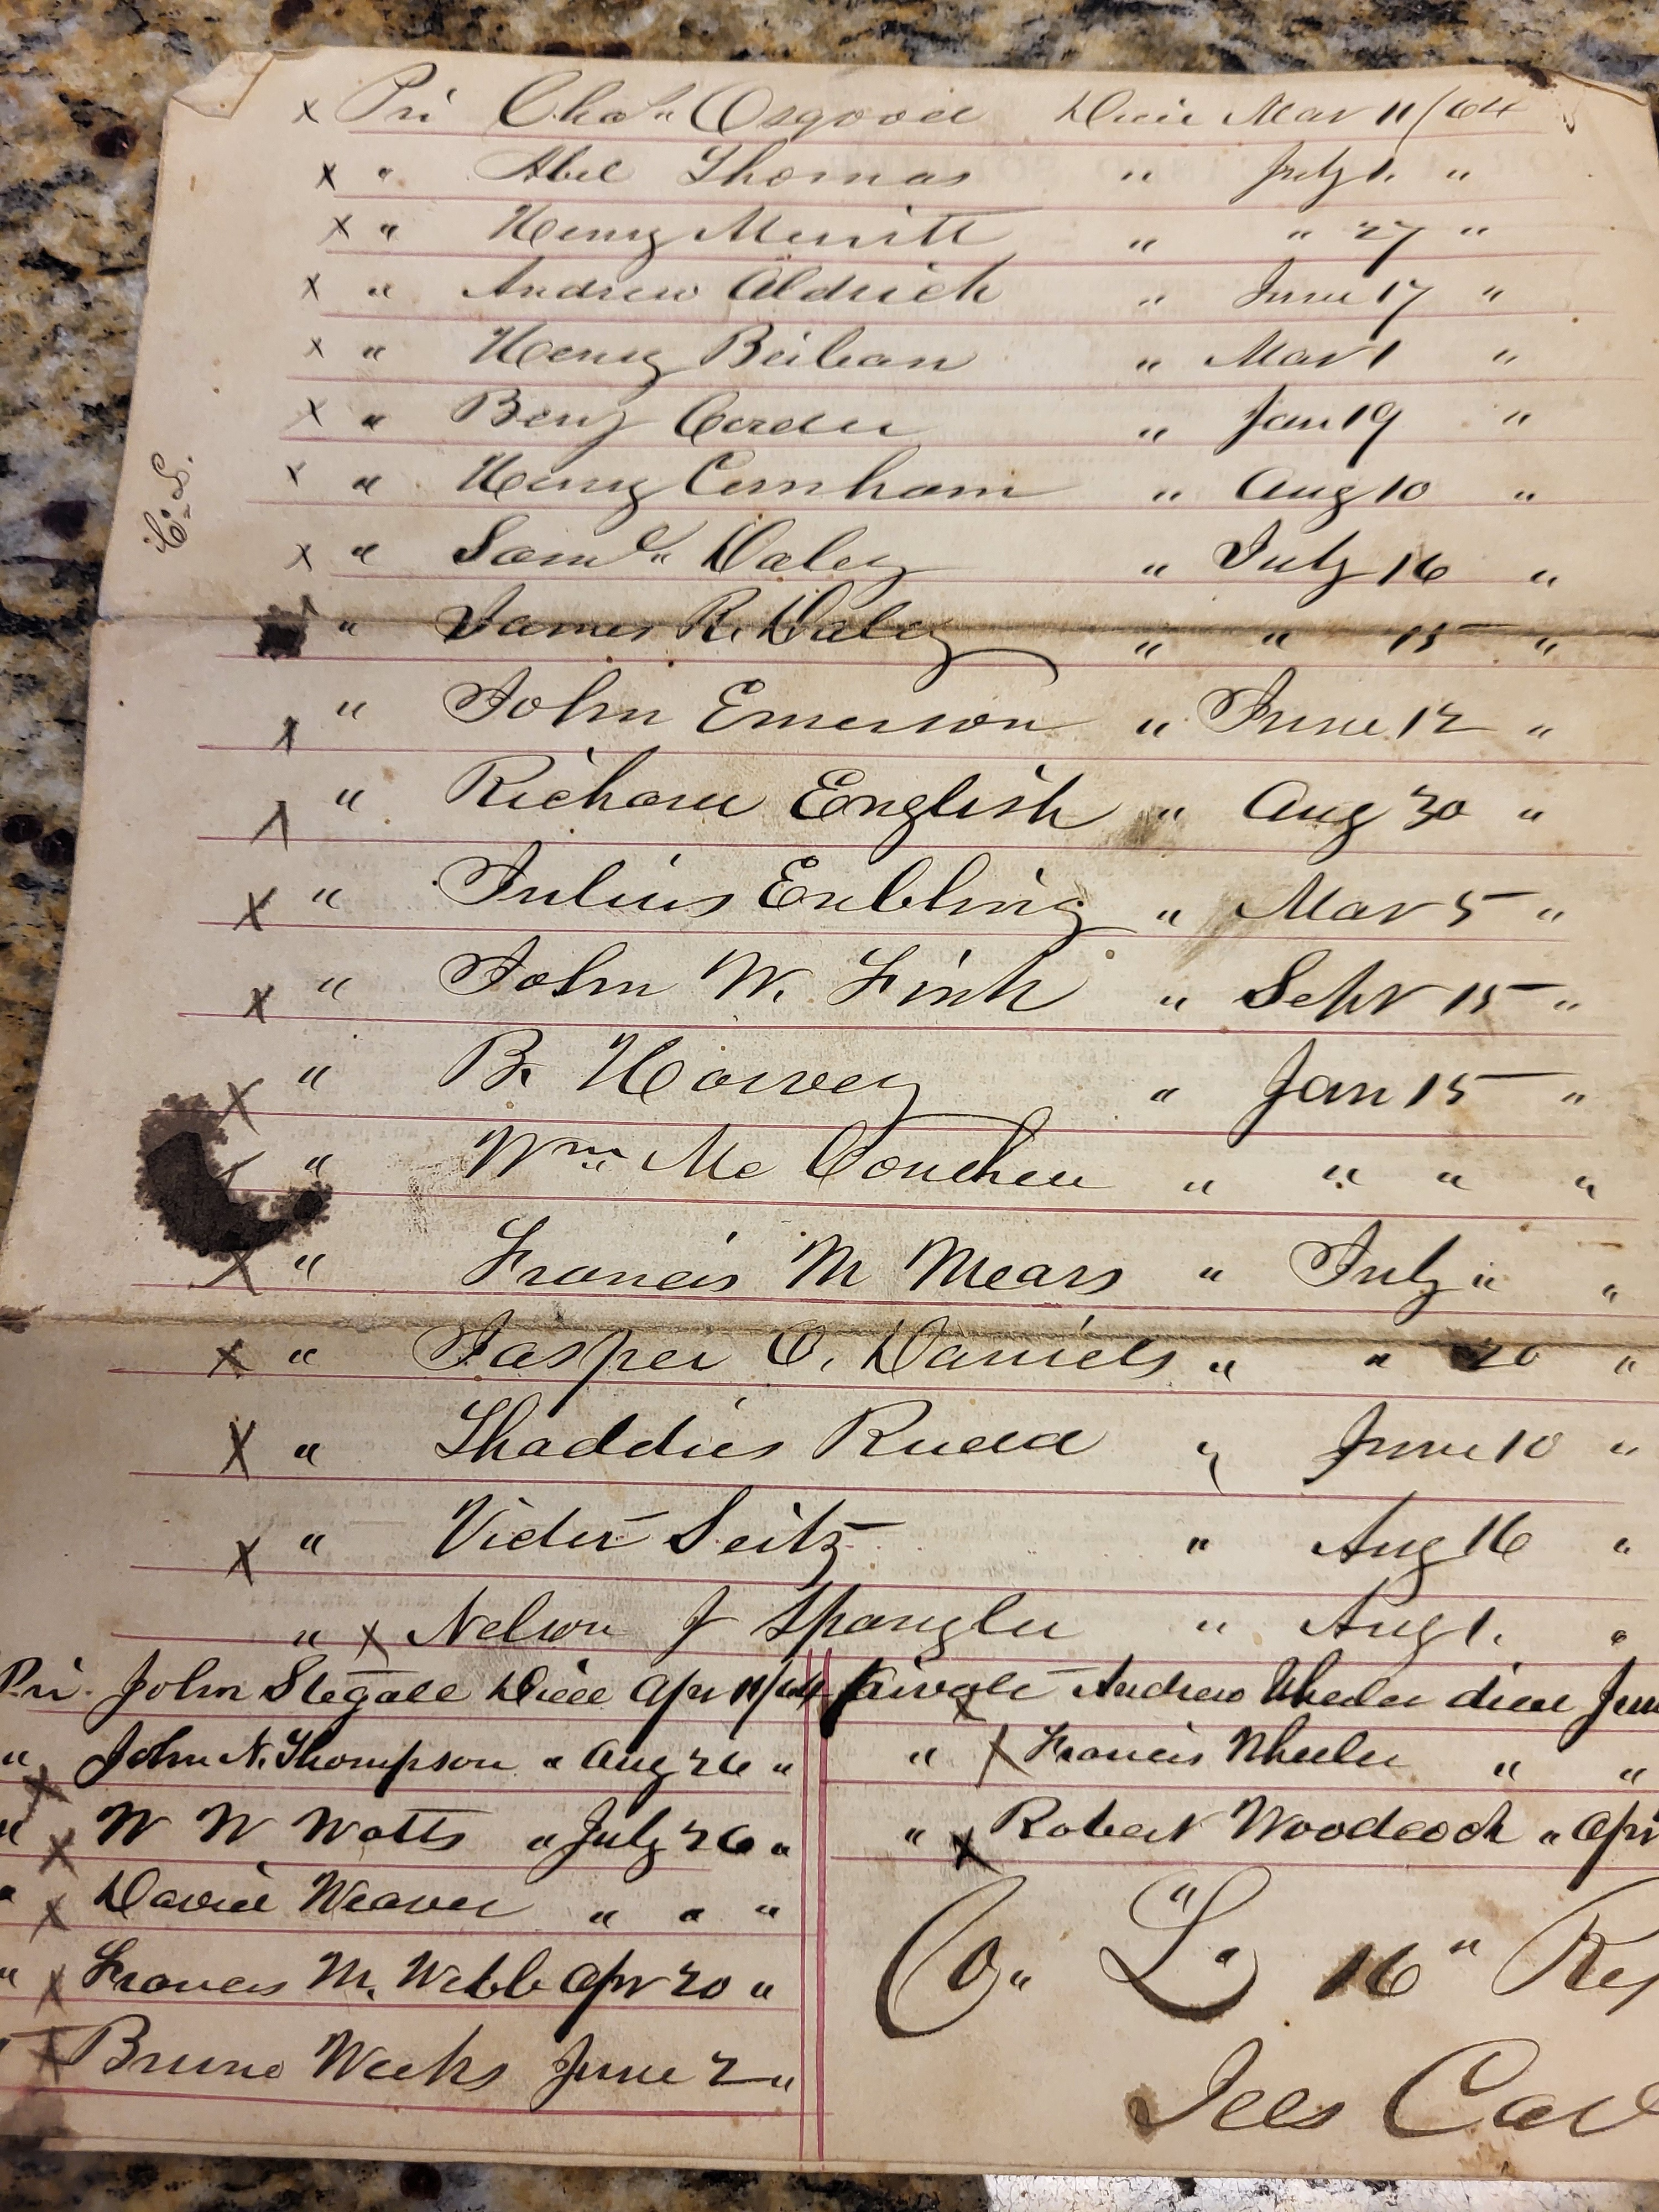 x Pri Chas. Osgood Died Mar 11/64
x " Abel Thomas " July 1. "
x " Henry Merritt " " 27 "
x " Andrew Aldrich " June 17 "
x " Henry Beiban " Mar 1 "
x " Benj Corder " Jan 19 "
x " Henry Cornham " Aug 10 "
x " Saml. Daley " July 16 "
" James R. Daley " " 15 "
x " John Emerson " June 12 "
x " Richard English " Aug 30 "
x " Julius Erbbling " Mar 5 "
x " John W. Fink " Sept 15 "
x " B. Harvey " Jan 15 "
x " Wm. Mc Couchen " " " "
x " Francis M Mears " July " "
x " Jasper O. Daniels " " 20 "
x " Thaddies Rudd " June 10 "
x " Victor Seitz " Aug 16 "
" x Nelson J Spangler " Aug 1. "
Pri. John Stegall Died Apr 11/64
" x John N. Thompson " Aug 26 "
" x W W Watts " July 26 "
" x David Weaver " " "
" x Francis M. Webb Apr 20 "
" x Bruno Weeks June 2 "
Private x Andrew Wheeler died Jun
" x Francis Wheeler " "
" x Robert Woodcock " Apr
Co. "L." 16" Re
Ills Cav